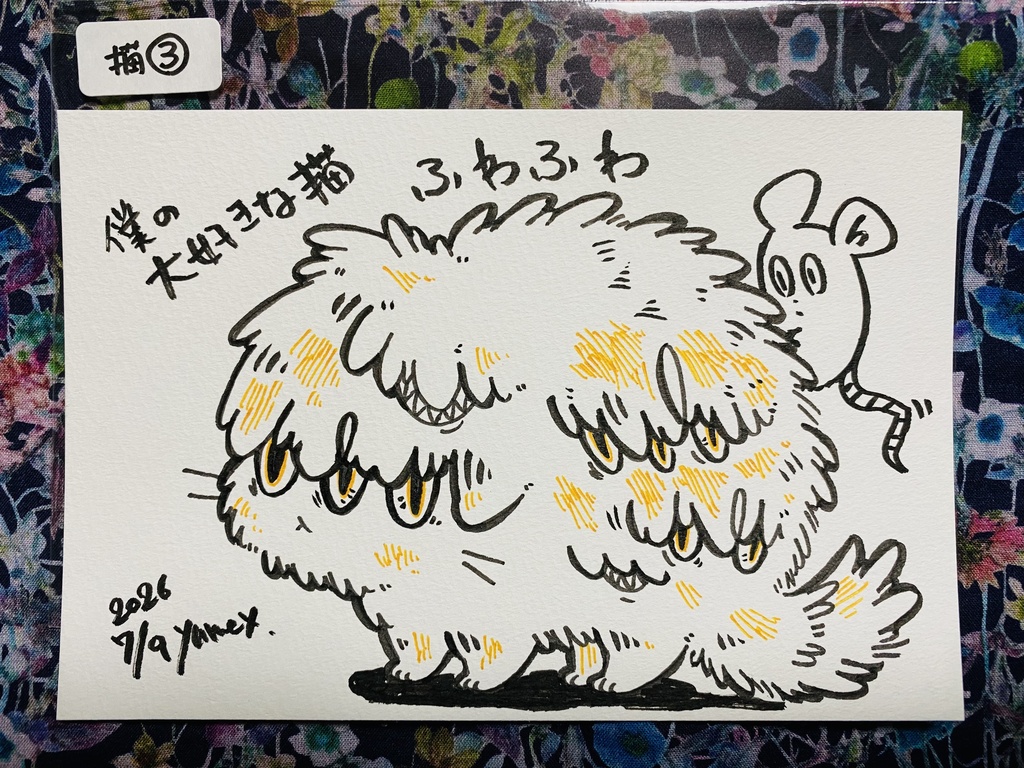 描③
僕の
大好きな描
ふわふわ
2026
7/9 yumeX.